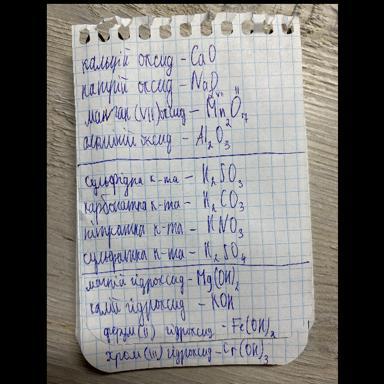 кальцій оксид - CaO
натрій оксид - NaO
манган (VII) оксид - Mn₂O₇
алюміній оксид - Al₂O₃
сульфідна к-та - H₂SO₃
карбонатна к-та - H₂CO₃
нітратна к-та - HNO₃
сульфатна к-та - H₂SO₄
магній гідроксид - Mg(OH)₂
калій гідроксид - KOH
ферум (II) гідроксид - Fe(OH)₂
хром (III) гідроксид - Cr(OH)₃